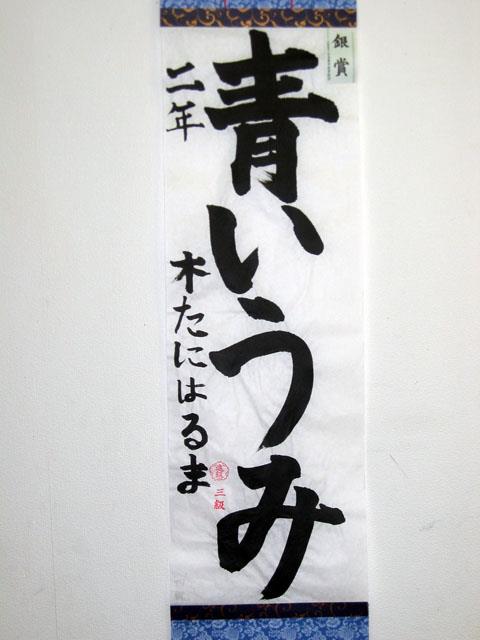 銀賞
青いうみ
二年
木たにはるま
三級